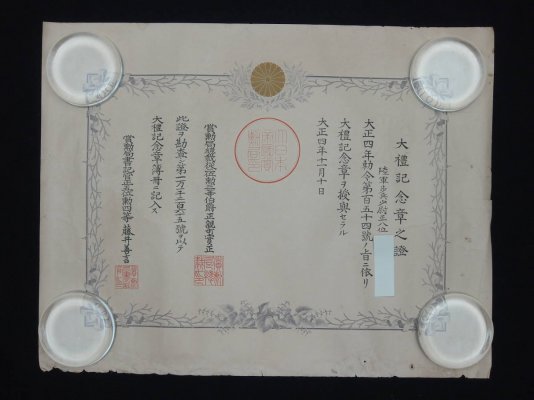 大禮記念章之證
陸軍歩兵少尉正八位
大正四年勅令第百五十四號ノ旨ニ依リ
大禮記念章ヲ授與セラル
大正四年十一月十日
賞勲局總裁從二位勲二等伯爵正親町實正
此證ヲ勘査シ第一万千三百六十五號ヲ以テ
大禮記念章簿冊ニ記入ス
賞勲局書記官正五位勲四等藤井善言